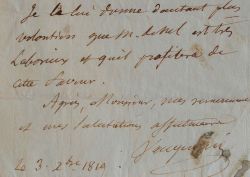 Je la lui donne d'autant plus
volontiers que M. de est très
Laborieux et qu'il profitera de
cette faveur.
Agréez, Monsieur, mes
et mes Salutations affectueuses
Le 3. Xbre 1814